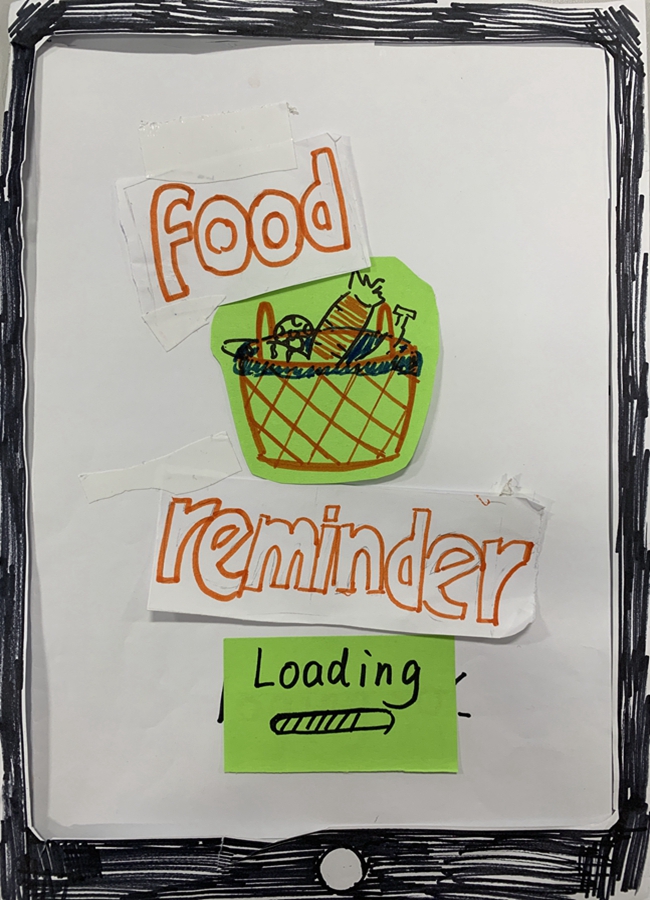 food
reminder
Loading